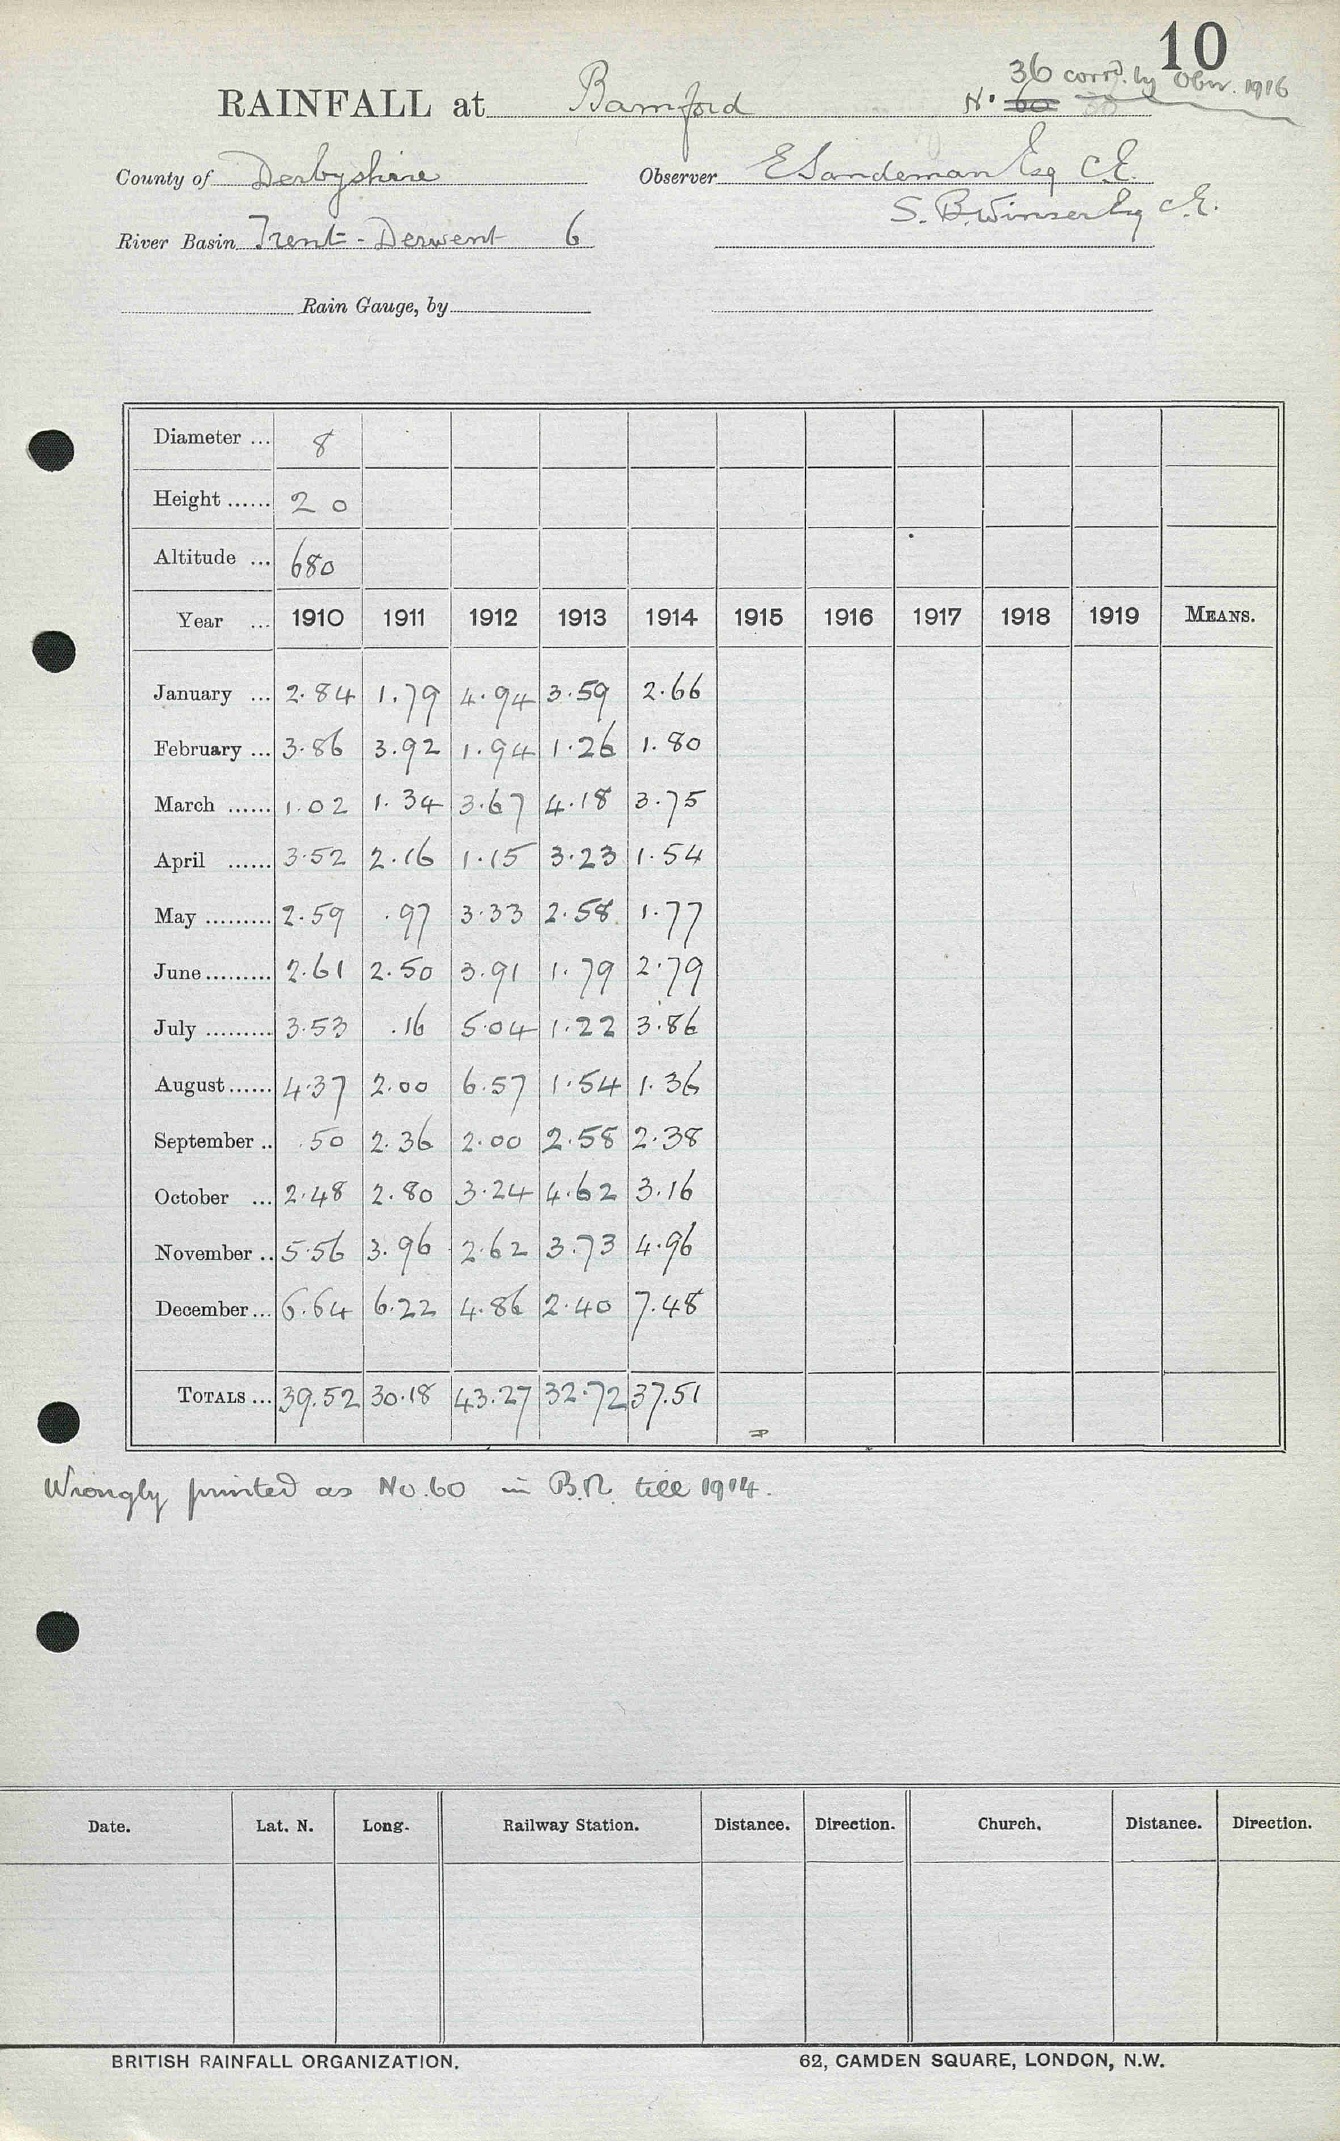 10
36 corrd. by Obsr. 1916
RAINFALL at Bamford No. 60
County of Derbyshire Observer E Sandeman Esq C.E.
S. B. Winser Esq C.E.
River Basin Trent - Derwent 6
Rain Gauge, by
Diameter ... 8
Height ...... 2 0
Altitude ... 680
Year ... 1910 1911 1912 1913 1914 1915 1916 1917 1918 1919 MEANS.
January ... 2.84 1.79 4.94 3.59 2.66
February ... 3.86 3.92 1.94 1.26 1.80
March ...... 1.02 1.34 3.67 4.18 3.75
April ...... 3.52 2.16 1.15 3.23 1.54
May ......... 2.59 .97 3.33 2.58 1.77
June ......... 2.61 2.50 3.91 1.79 2.79
July ......... 3.53 .16 5.04 1.22 3.86
August ...... 4.37 2.00 6.57 1.54 1.36
September .. .50 2.36 2.00 2.58 2.38
October ... 2.48 2.80 3.24 4.62 3.16
November .. 5.56 3.96 2.62 3.73 4.96
December ... 6.64 6.22 4.86 2.40 7.48
TOTALS ... 39.52 30.18 43.27 32.72 37.51
Wrongly printed as No. 60 in B.R. till 1914.
Date. Lat. N. Long. Railway Station. Distance. Direction. Church. Distance. Direction.
BRITISH RAINFALL ORGANIZATION. 62, CAMDEN SQUARE, LONDON, N.W.